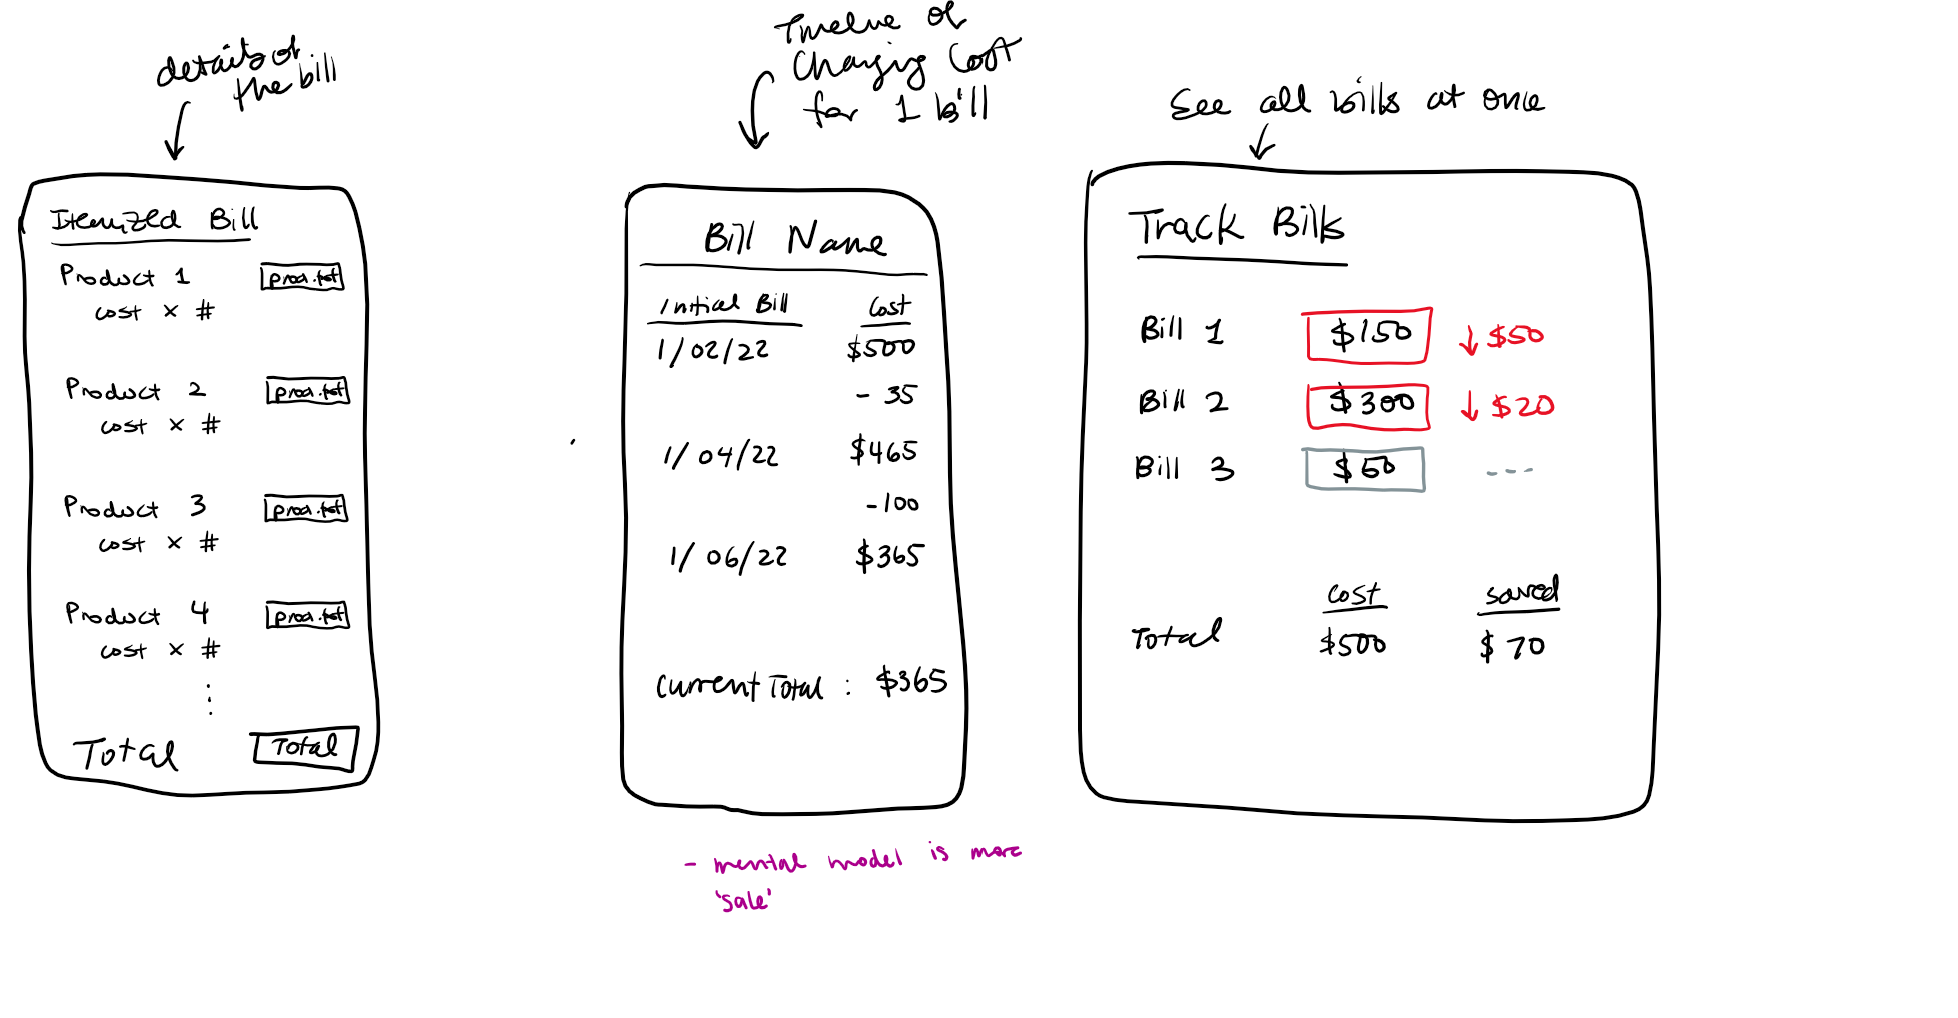 details of
the bill
Itemized Bill
Product 1 prod.tot
cost × #
Product 2 prod.tot
cost × #
Product 3 prod.tot
cost × #
Product 4 prod.tot
cost × #
Total Total
Timeline of
Changing Cost
for 1 bill
Bill Name
Initial Bill Cost
1/02/22 $500
- 35
1/04/22 $465
-100
1/06/22 $365
Current Total : $365
- mental model is more
'sale'
See all bills at once
Track Bills
Bill 1 $150 ↓ $50
Bill 2 $300 ↓ $20
Bill 3 $50 ---
cost saved
Total $500 $70